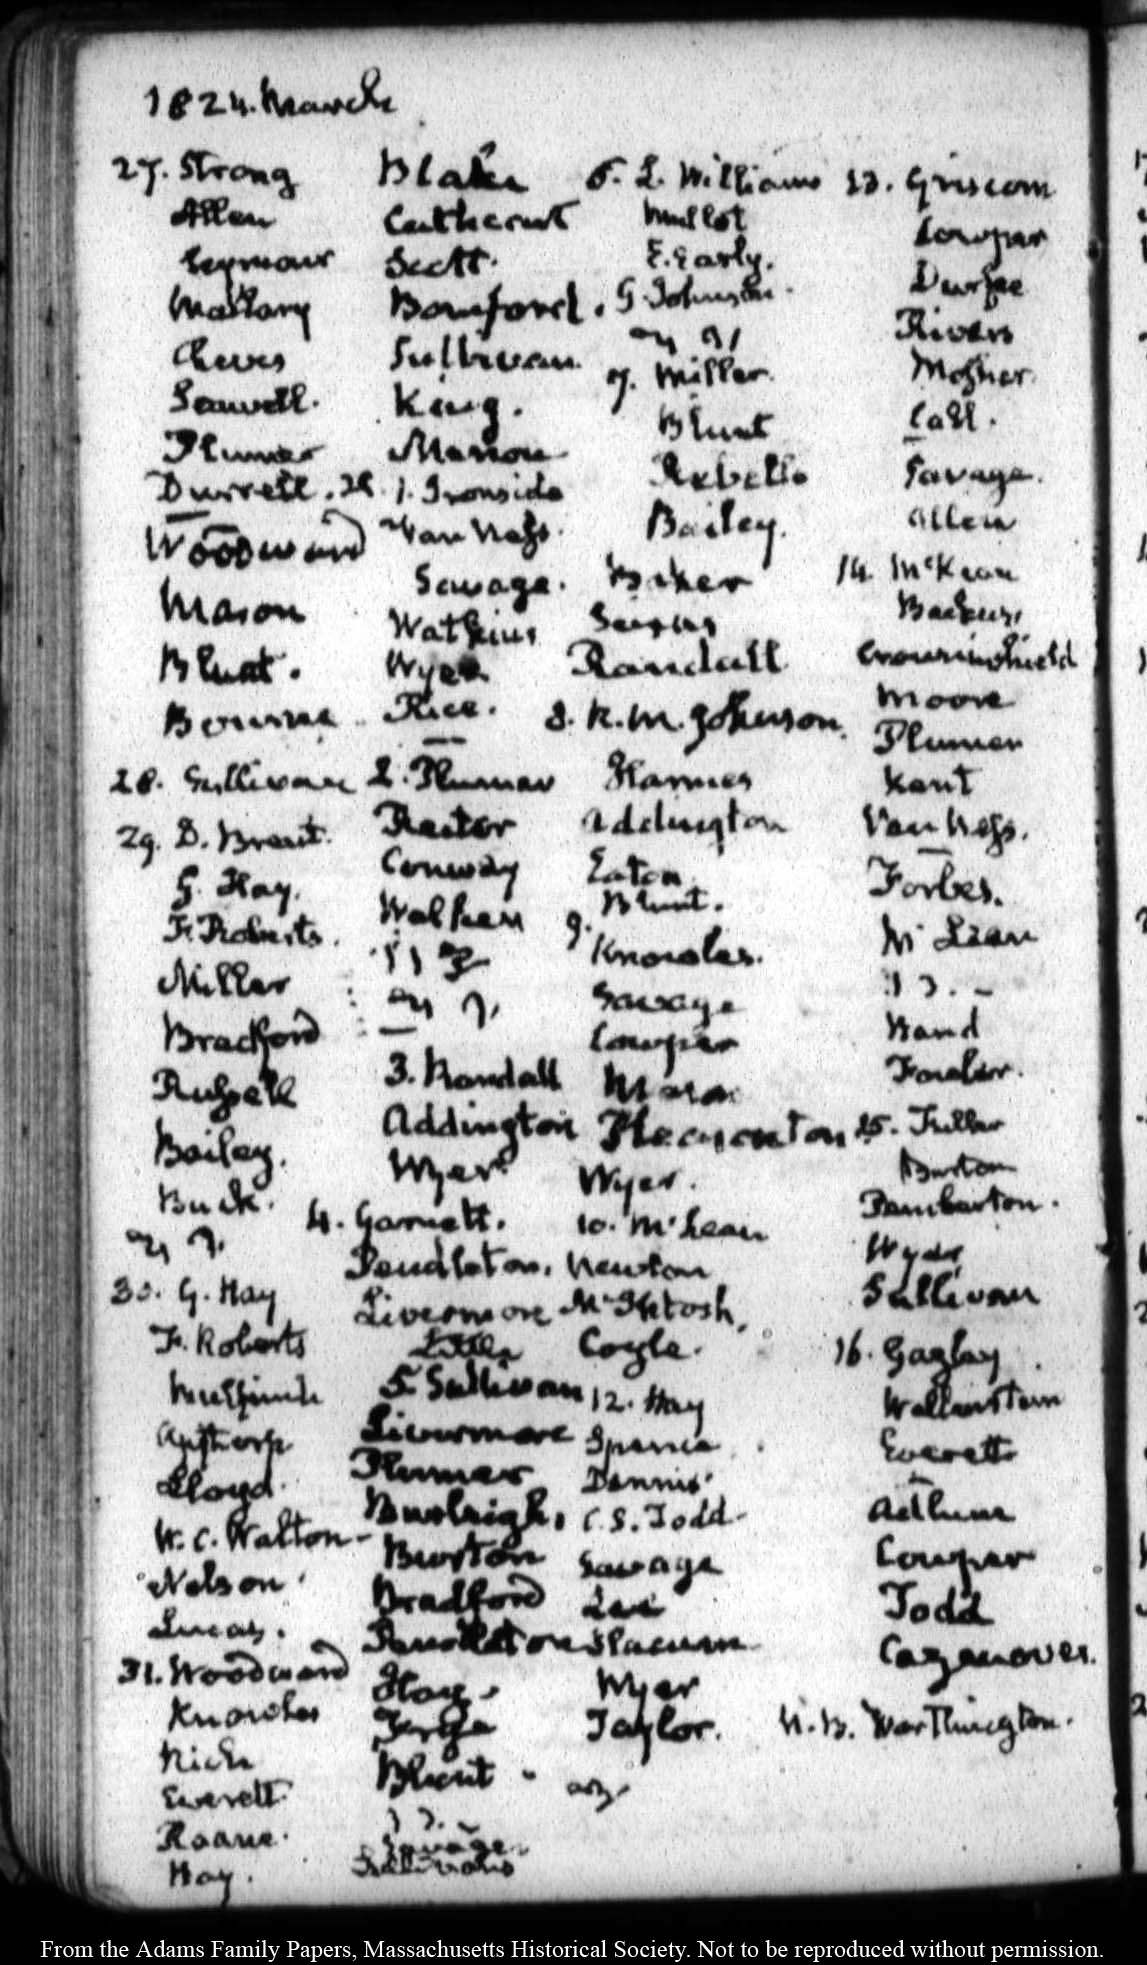 1824. March
27. Strong
Allen
Seymour
Mallary
Cheves
Seawell.
Plumer
Durrell. 28.
Woodward
Mason
Blunt.
Bourne
28. Sullivan
29. D. Brent.
G. Hay.
F. Roberts.
Miller
Bradford
Russell
Bailey.
Buck.
30. G. Hay
F. Roberts
Apthorp
Lloyd.
W. C. Walton
Nelson
Lucas.
31. Woodward
Knowles
Rich
Everett
Roane.
Hay.
Blake
Cathcart
Scott.
Bomford.
Sullivan
King.
Marion
1. Ironside
Van Ness.
Savage.
Watkins
Wyer
Rice.
2. Plumer
Rector
Conway
Walker
3. Randall
Addington
Wyer
4. Garnett.
Pendleton.
Livermore
Little
5. Sullivan
Livermore
Plumer
Burleigh.
Burton
Bradford
Pendleton
Hay.
Blunt
Savage
Sullivan
6. L. Williams
E. Early.
G. Johnson
7. Miller.
Blunt
Rebello
Bailey.
Baker
Randall
8. R. M. Johnson.
Addington
Eaton
Blunt.
9.
Knowles.
Savage
Cowper
Pleasonton
Wyer.
10. McLean
Newton
McIntosh.
Coyle.
12. Hay
Spence
Dennis
C. S. Todd
Savage
Lee
Slacum
Wyer
Taylor.
13. Griscom
Cowper
Durfee
Rivers
Mosher.
Call.
Savage.
Allen
14. McKean
Backus
Crowninshield
Moore
Plumer
Kent
Van Ness.
Forbes.
McLean
Hand
Fowler.
15. Fuller
Burton
Pemberton.
Wyer
Sullivan
16. Gazlay
Wallenstein
Everett
Adlum
Cowper
Todd
Cazenoves.
N. B. Worthington.
From the Adams Family Papers, Massachusetts Historical Society. Not to be reproduced without permission.